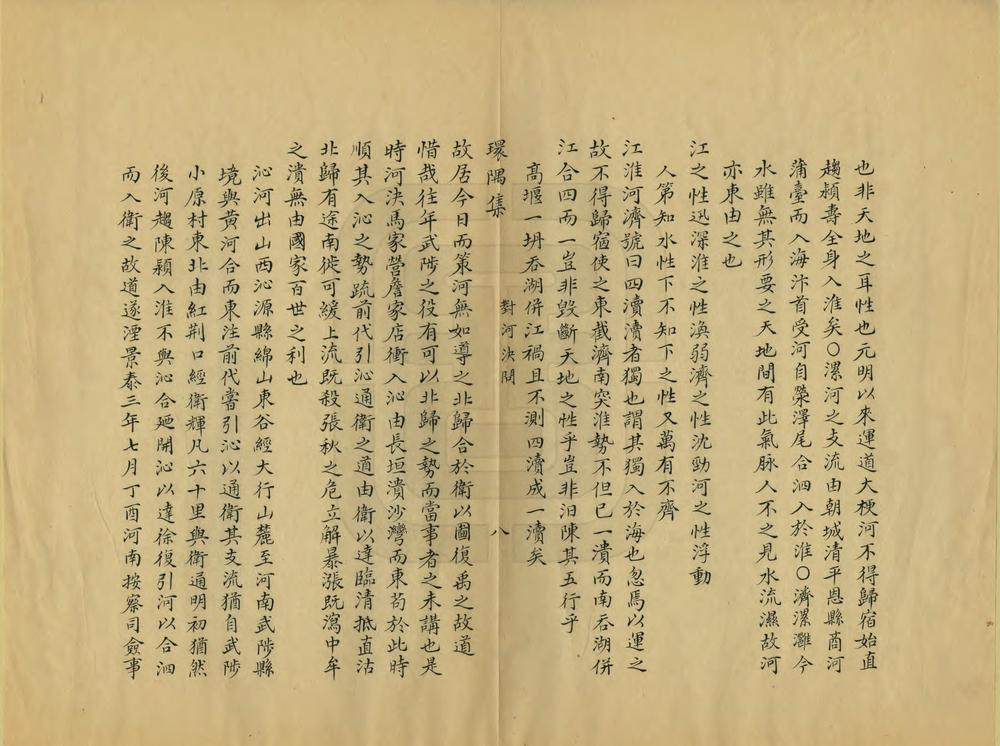 也非天地之耳性也元明以來運道大梗河不得歸宿始直
趨潁壽全身入淮矣○漯河之支流由朝城清平恩縣商河
蒲臺而入海汴首受河自滎澤尾合泗入於淮○濟漯灉今
水雖無其形要之天地間有此氣脉人不之見水流濕故河
亦東由之也
江之性迅深淮之性渙弱濟之性沈勁河之性浮動
人第知水性下不知下之性又萬有不齊
江淮河濟號曰四瀆瀆者獨也謂其獨入於海也忽焉以運之
故不得歸宿使之東截濟南突淮勢不但已一潰而南吞湖併
江合四而一豈非毀斷天地之性乎豈非汩陳其五行乎
高堰一坍吞湖併江禍且不測四瀆成一瀆矣
環隅集 對河決問 八
故居今日而策河無如導之北歸合於衛以圖復禹之故道
惜哉往年武陟之役有可以北歸之勢而當事者之未講也是
時河決馬家營詹家店衝入沁由長垣潰沙灣而東苟於此時
順其入沁之勢疏前代引沁通衛之道由衛以達臨清抵直沽
北歸有途南徙可緩上流既殺張秋之危立解暴漲既瀉中牟
之潰無由國家百世之利也
沁河出山西沁源縣綿山東谷經大行山麓至河南武陟縣
境與黃河合而東注前代嘗引沁以通衛其支流猶自武陟
小原村東北由紅荆口經衛輝凡六十里與衛通明初猶然
後河趨陳潁入淮不與沁合廼開沁以達徐復引河以合泗
而入衛之故道遂湮景泰三年七月丁酉河南按察司僉事